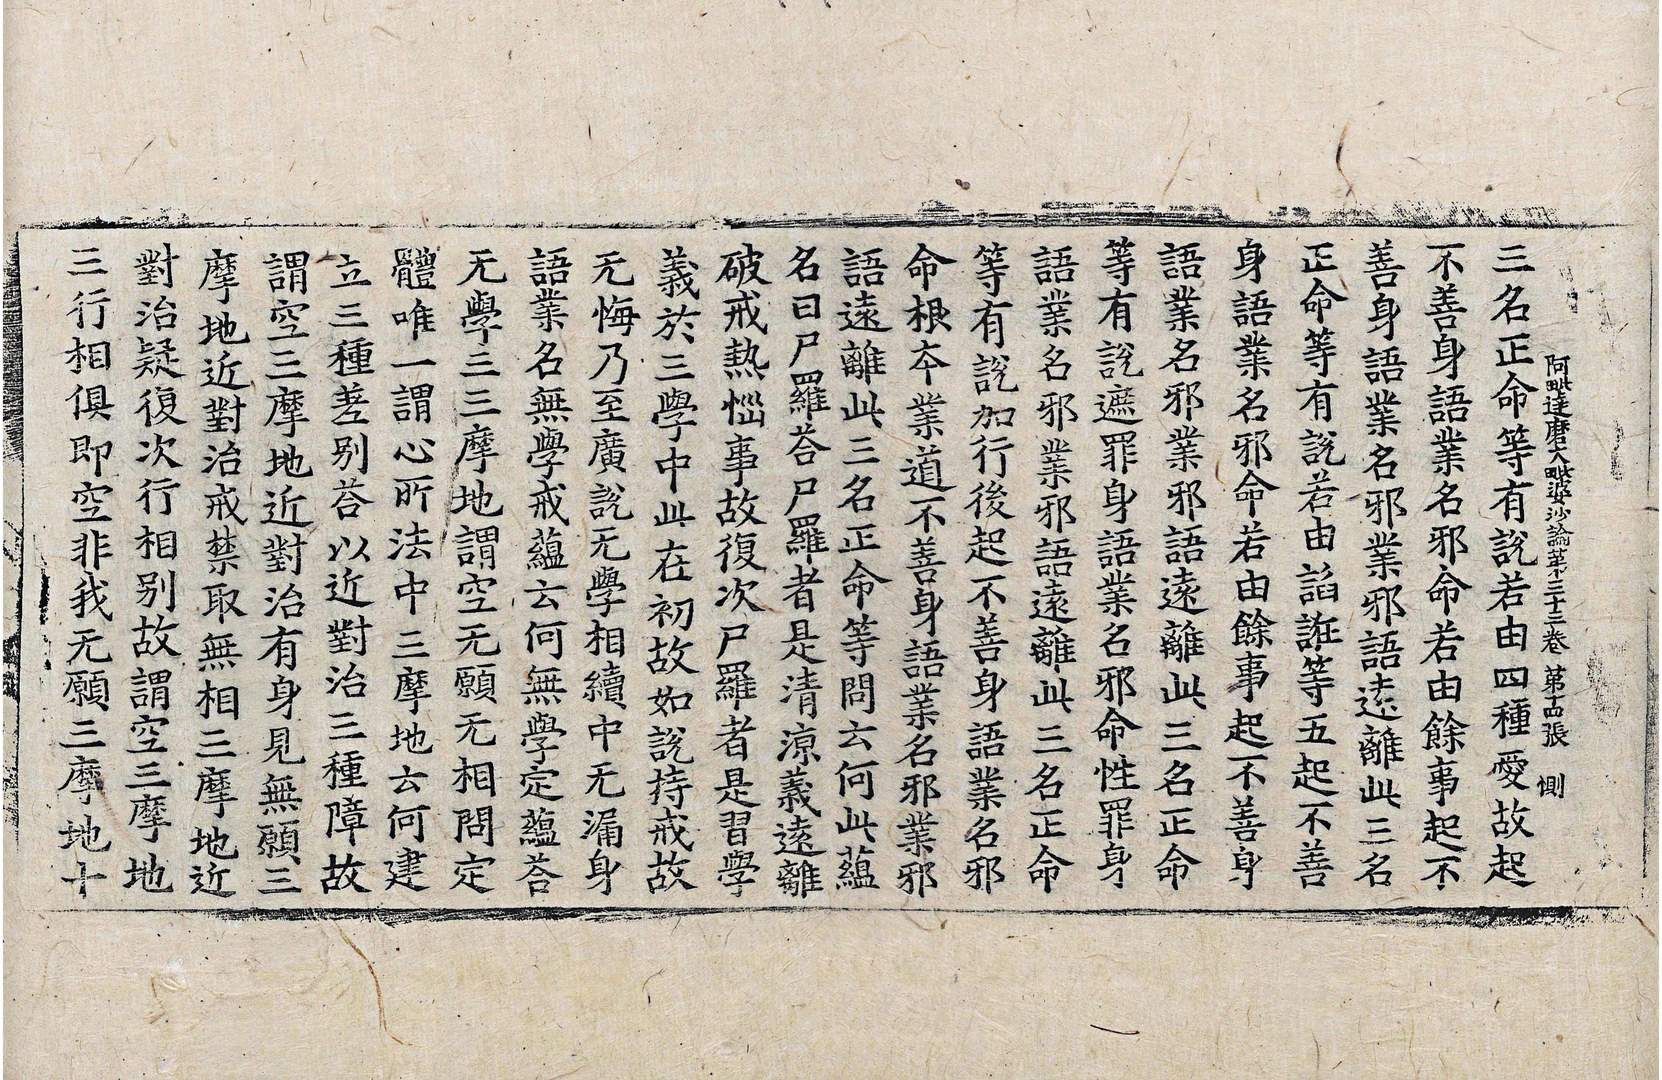 阿毗達磨大毗婆沙論第三十三卷 第張 惻
三名正命等有說若由四種愛故起
不善身語業名邪命若由餘事起不
善身語業名邪業邪語遠離此三名
正命等有說若由謟誑等五起不善
身語業名邪命若由餘事起不善身
語業名邪業邪語遠離此三名正命
等有說遮罪身語業名邪命性罪身
語業名邪業邪語遠離此三名正命
等有說加行後起不善身語業名邪
命根本業道不善身語業名邪業邪
語遠離此三名正命等問云何此蘊
名曰尸羅荅尸羅者是清涼義遠離
破戒熱惱事故復次尸羅者是習學
義於三學中此在初故如說持戒故
无悔乃至廣說无學相續中无漏身
語業名無學戒蘊云何無學定蘊荅
无學三三摩地謂空无願无相問定
體唯一謂心所法中三摩地云何建
立三種差别荅以近對治三種障故
謂空三摩地近對治有身見無願三
摩地近對治戒禁取無相三摩地近
對治疑復次行相别故謂空三摩地
三行相俱即空非我无願三摩地十